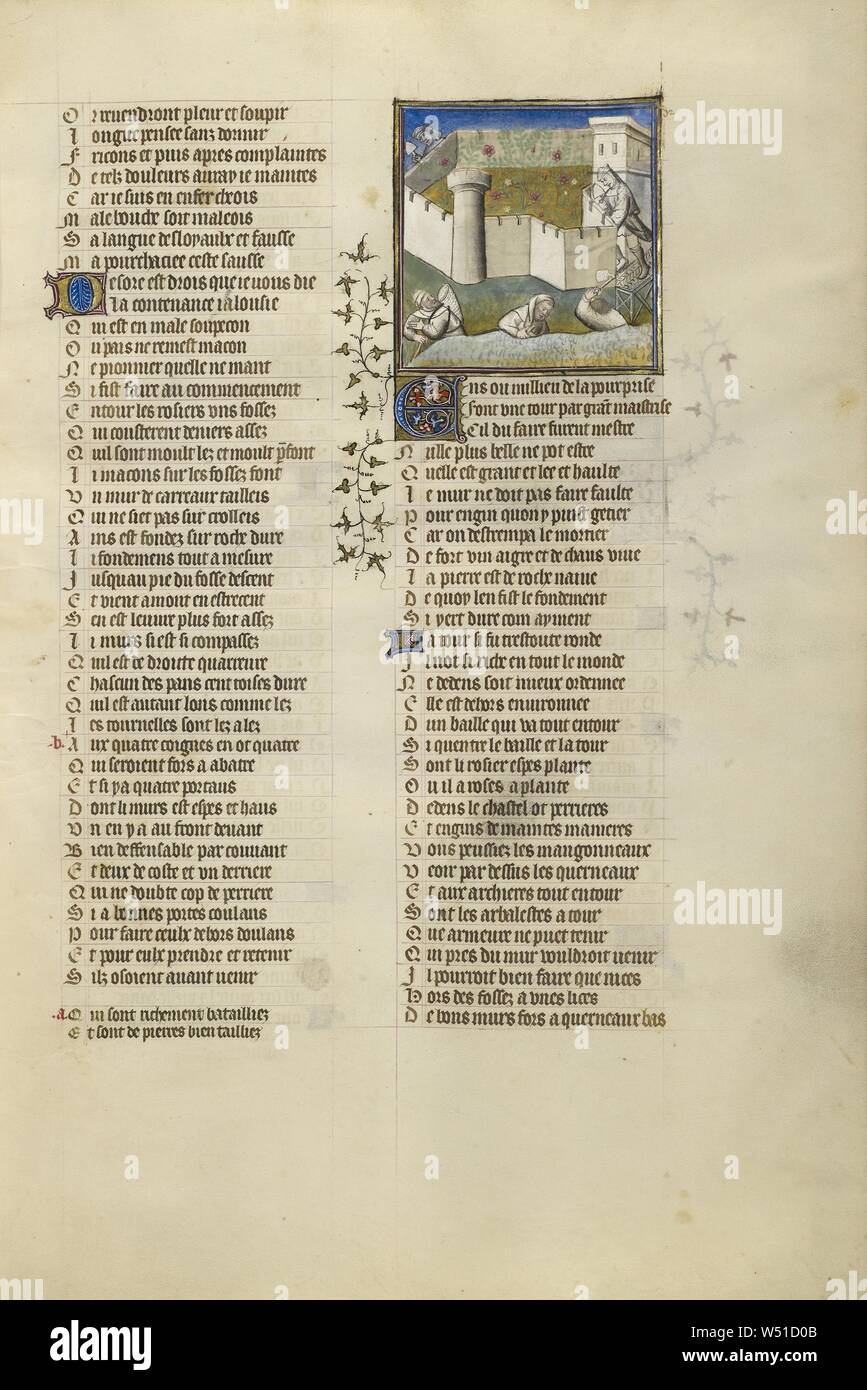 O r reuendront pleur et soupir
L ongue pensee sanz dormir
F ricons et puis apres complaintes
D e telz douleurs auray ie maintes
C ar ie suis en enfer cheois
M ale bouche soit maleois
S a langue desloyaulx et fausse
M a pourchaciee ceste sausse
D esore est drois que ie uous die
L a contenance ialousie
Q ui est en male soupecon
O u pais ne remest macon
N e pionnier quelle ne mant
S i fist faire au commencement
E ntour les rosiers vns fossez
Q ui cousterent deniers assez
Q uil sont moult lez et moult pfont
L i macons sur les fossez font
V n mur de carreaux tailleis
Q ui ne siet pas sur crolleis
A ins est fondez sur roche dure
L i fondemens tout a mesure
J usquau pie du fosse descent
E t vient amont en estrecent
S en est leuure plus fort assez
L i murs si est si compassez
Q uil est de droitte quarreure
C hascun des pans cent toises dure
Q uil est autant lons comme lez
L es tournelles sont lez a lez
.b. A ux quatre coignes en ot quatre
Q ui seroient fors a abatre
E t si ya quatre portaus
D ont li murs est espes et haus
V n en y a au front deuant
B ien deffensable par couuant
E t deux de coste et vn derriere
Q ui ne doubte cop de perriere
S i a bonnes portes coulans
P our faire ceulx dehors doulans
E t pour eulx prendre et retenir
S ilz osoient auant uenir
.a. Q ui sont richement bataillez
E t sont de pierres bien taillez
E ns ou millieu de la pourprise
Font vne tour par grant maistrise
C il du faire furent mestre
N ulle plus belle ne pot estre
Q uelle est grant et lee et haulte
L e mur ne doit pas faire faulte
P our engin quon y puist getier
C ar on destrempa le mortier
D e fort vin aigre et de chaus viue
L a pierre est de roche naiue
D e quoy len fist le fondement
S i yert dure com ayment
L a tour si fu trestoute ronde
J l not si riche en tout le monde
N e dedens soit mieux ordennee
E lle est dehors enuironnee
D un baille qui va tout entour
S i quentre le baille et la tour
S ont li rosier espes plante
O u il a roses a plante
D edens le chastel ot perrieres
E t engins de maintes manieres
V ous peussiez les mangonneaux
V eoir par dessus les querneaux
E t aux archieres tout entour
S ont les arbalestes a tour
Q ue armeure ne puet tenir
Q ui pres du mur vouldroit uenir
J l pourroit bien faire que nices
H ors des fossez a vnes lices
D e bons murs fors a querneaux bas
alamy
alamy
alamy
a
a
a
a
a
a
alamy
Image ID: W51D0B
www.alamy.com